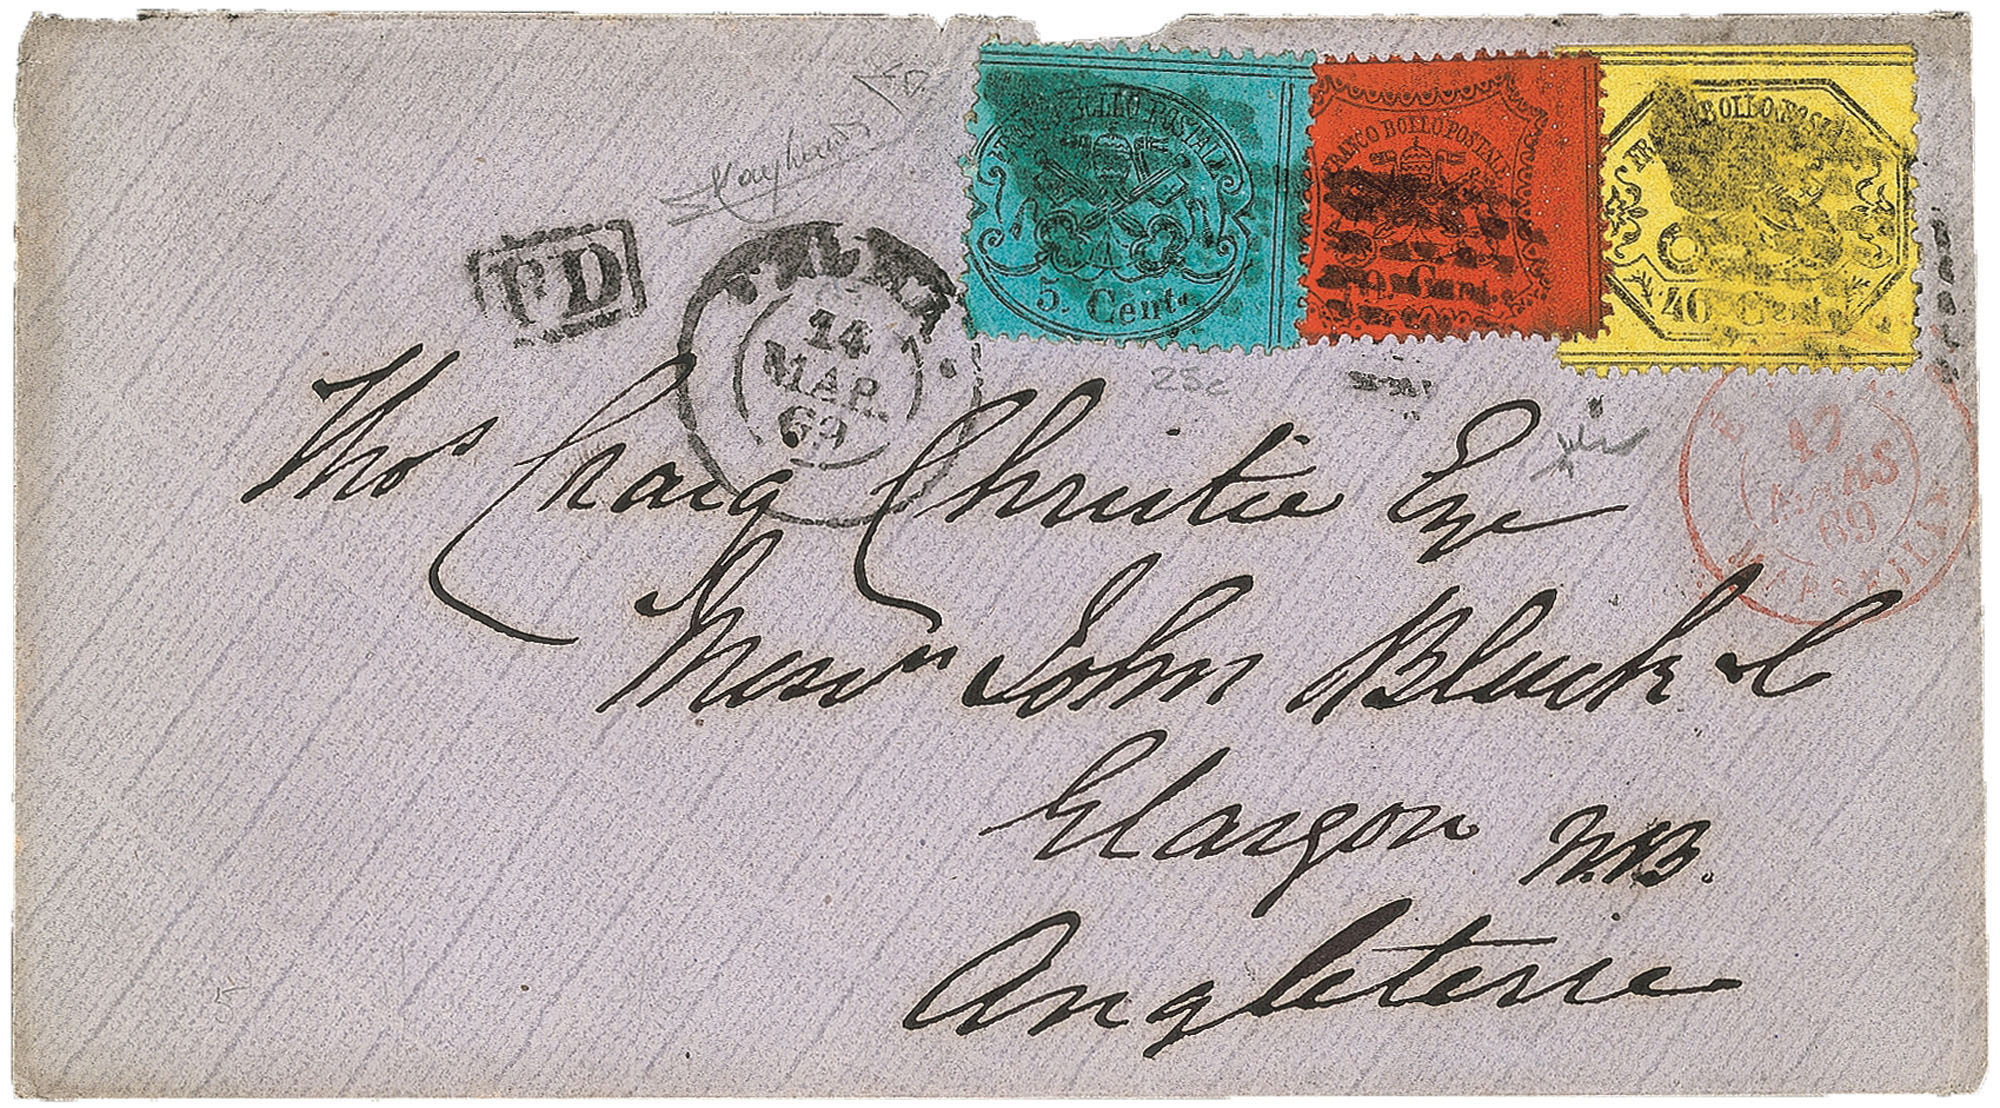 FRANCO BOLLO POSTALE
5. Cent.
FRANCO BOLLO POSTALE
Cent.
BOLLO POSTALE
40 Cent.
PD
14
MAR.
69
25c
17
MARS
69
MARSEILLE
Thos Craig Christie Esqe
Messrs John Black & C
Glasgow N.B.
Angleterre